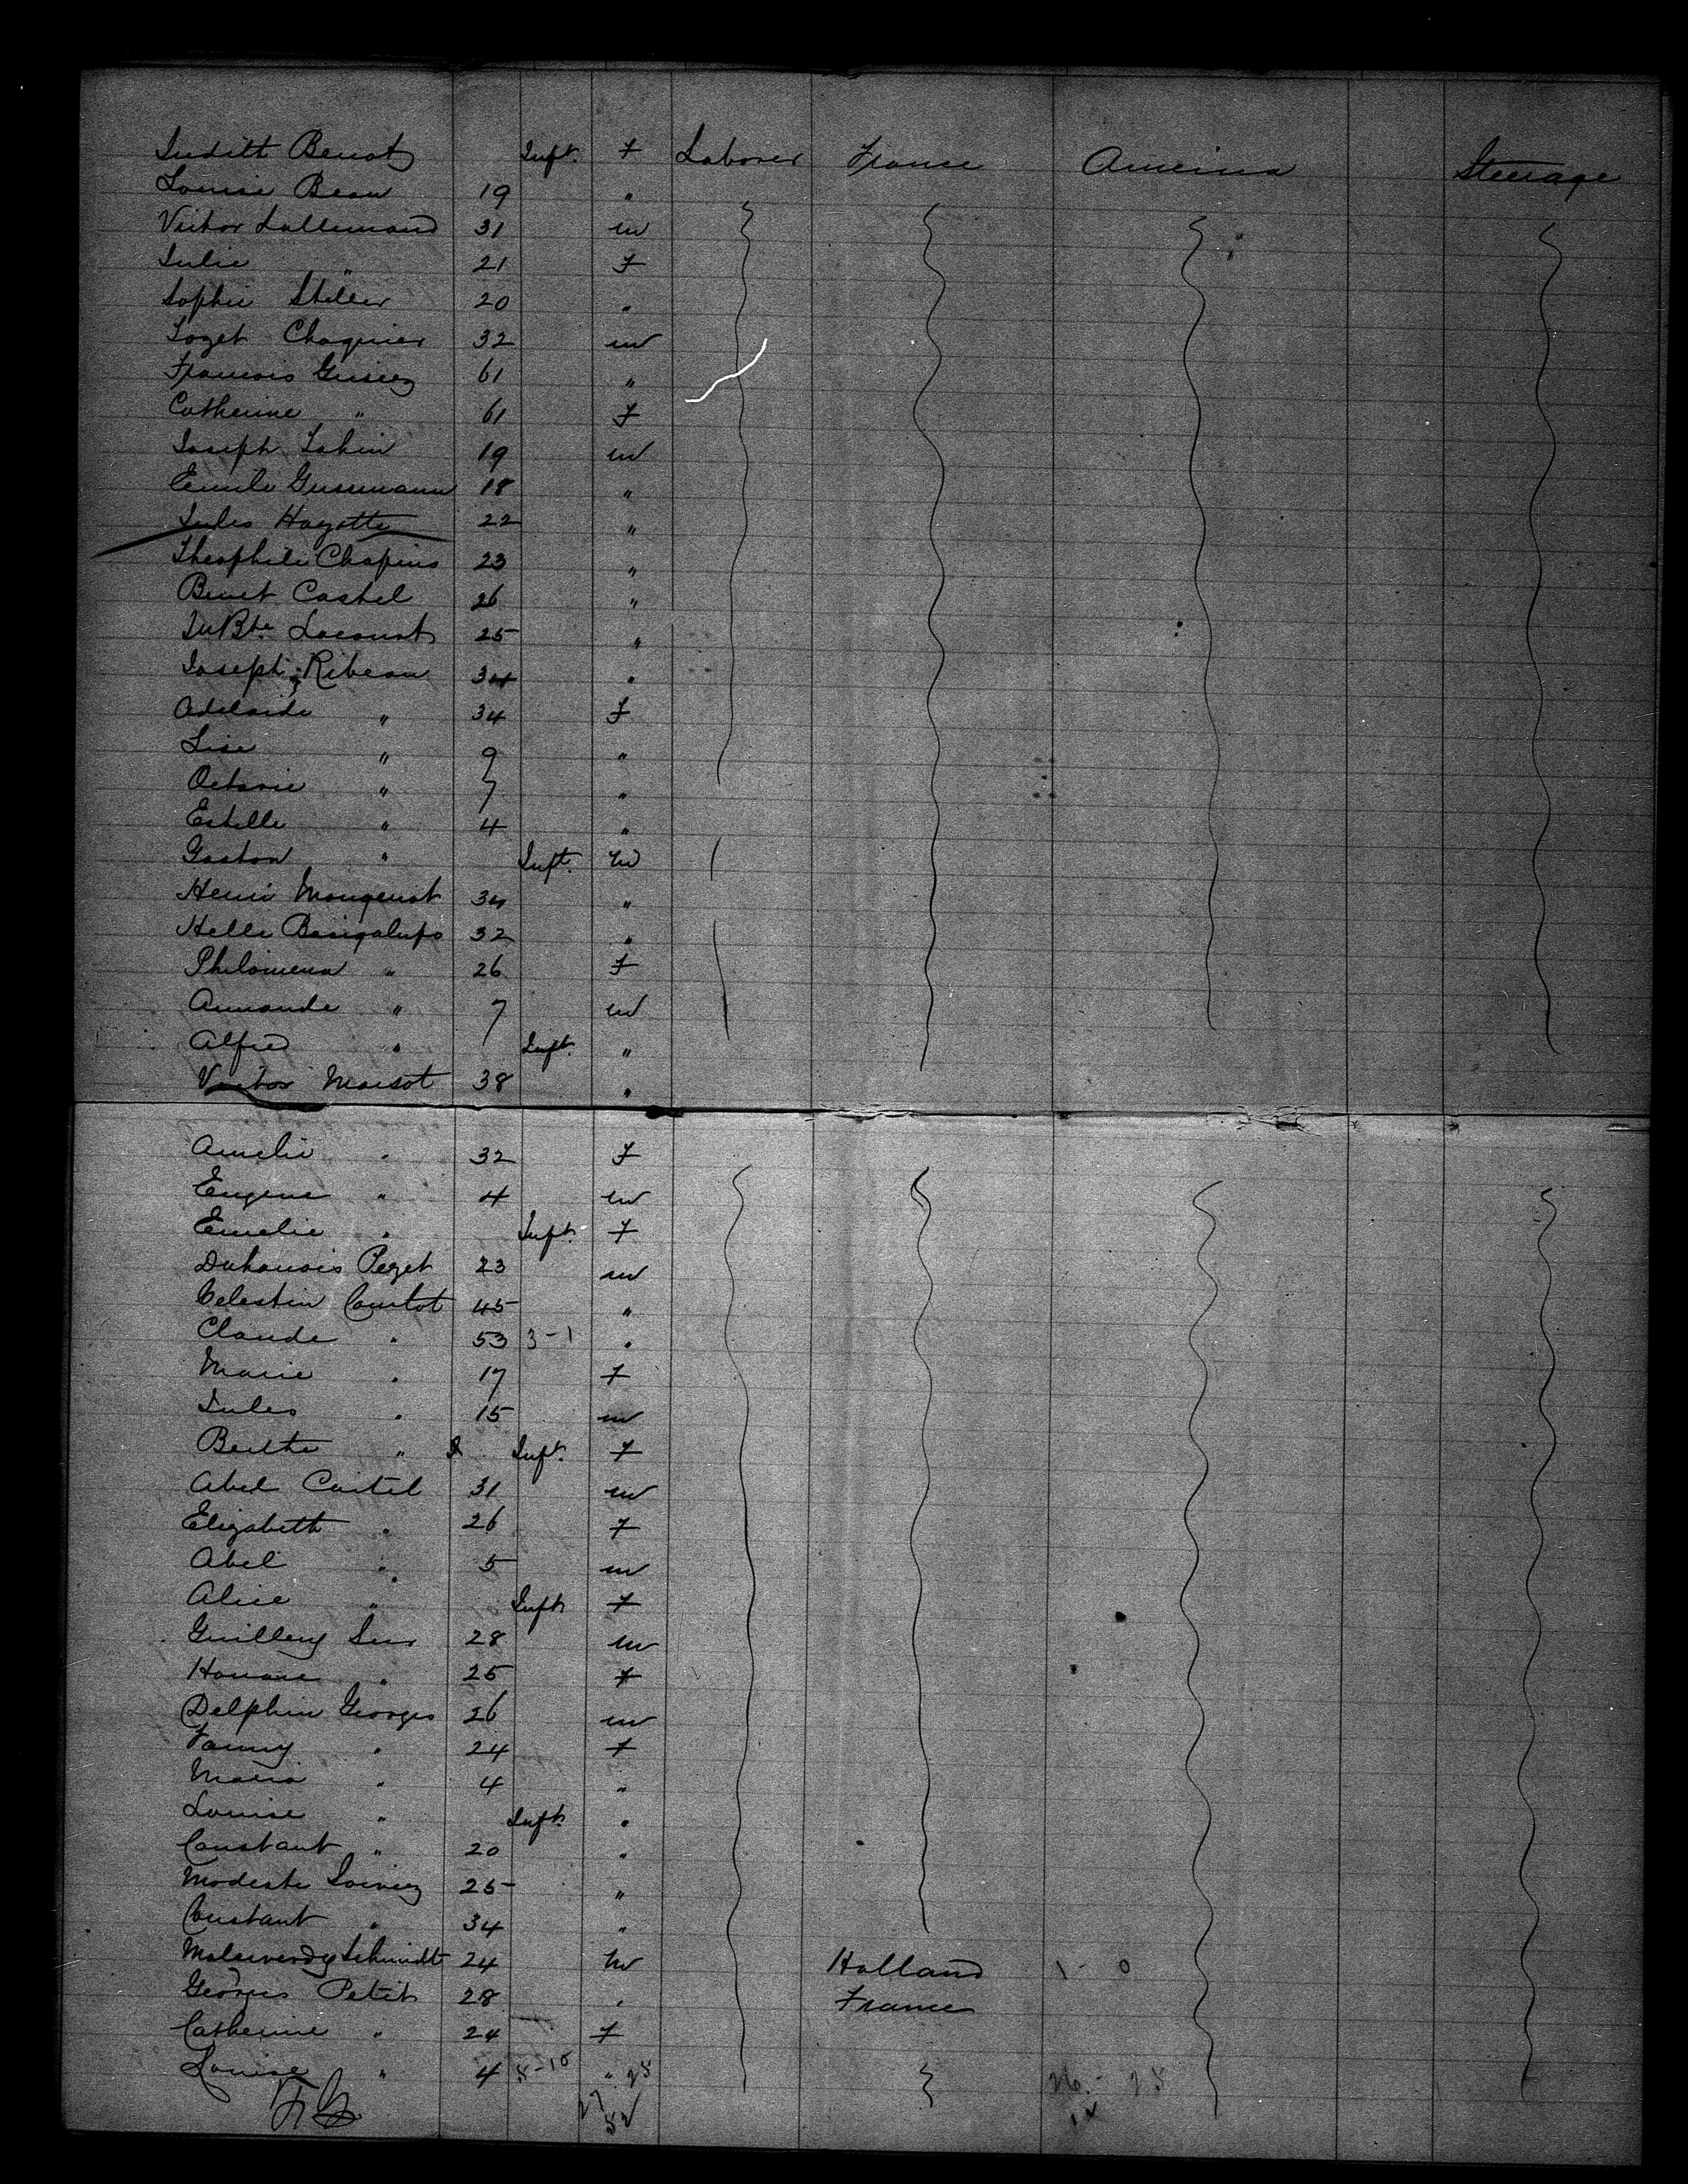 Judith Benot Inft. f Laborer France America Steerage
Louise Beau 19 "
Victor Lallemand 31 m
Julie " 21 f
Sophie Steller 20 "
Chagnier 32 m
Francois 61 "
Catherine " 61 f
Joseph 19 m
Emile Gussmann 18 "
Jules Hayotte 22 "
Theophile Chapins 23 "
Benet Castel 26 "
Lacourt 25 "
Joseph Ribeau 34 "
Adelaide " 34 f
Lise " 9 "
Octavie " 7 "
Estelle " 4 "
Gaston " Inft. m
Henri Mougenot 34 "
Helle Basigalupo 32 "
Philomena " 26 f
Armande " 7 m
Alfred " Inft. "
Victor Maisot 38 "
Amelie " 32 f
Eugene " 4 m
Emelie " Inft. f
Duhanois Peget 23 m
Celestin Courtot 45 "
Claude " 53 3-1 "
Marie " 17 f
Jules " 15 m
Berthe " Inft. f
Abel Castel 31 m
Elizabeth " 26 f
Abel " 5 m
Alice " Inft. f
Guillery 28 m
" 25 f
Delphin Georges 26 m
Fanny " 24 f
Maria " 4 "
Louise " Inft. "
Constant " 20 "
Modeste 25 "
Constant " 34 "
Schmidt 24 m Holland 1-0
Georges Petit 28 " France
Catherine " 24 f
Louise " 4 "